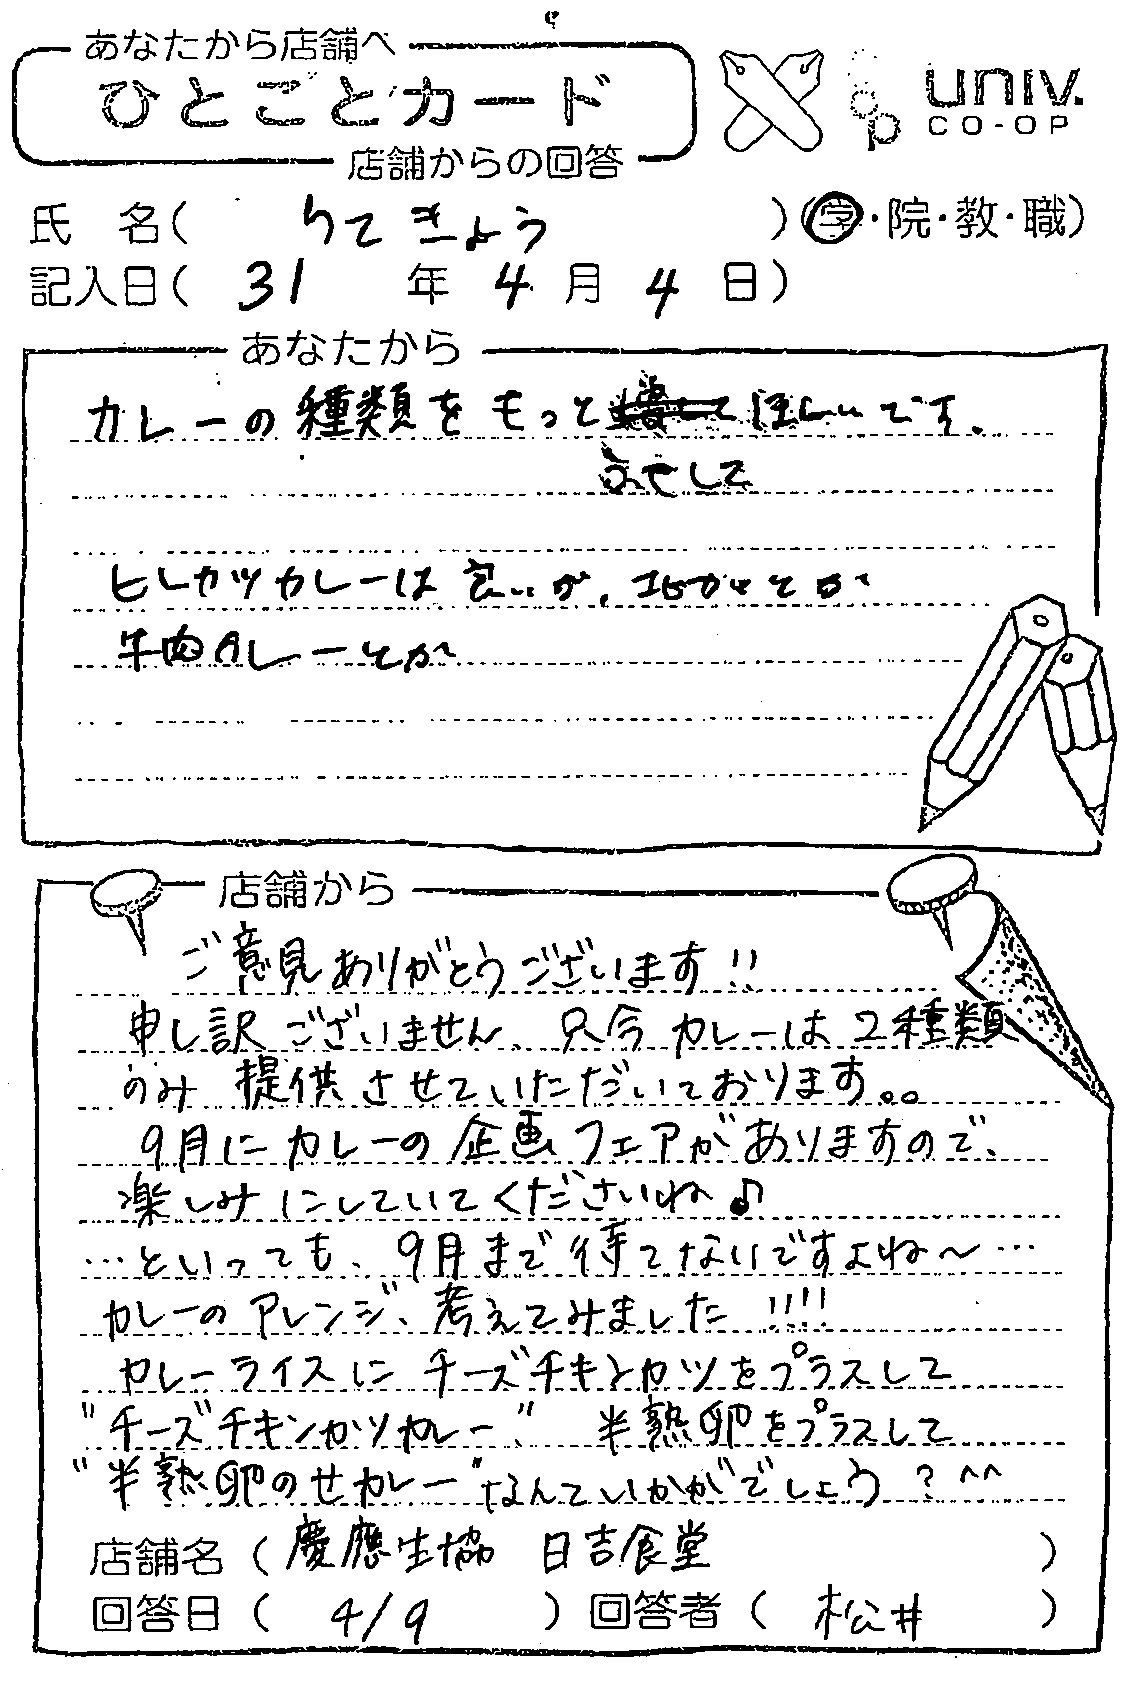 あなたから店舗へ
ひとことカード
店舗からの回答
univ.
CO-OP
氏 名( りてきょう )(学・院・教・職)
記入日( 31 年 4 月 4 日)
あなたから
カレーの種類をもっと ほしいです。
ふやして
ヒレカツカレーは良いが、 とか
牛肉カレーとか
店舗から
ご意見ありがとうございます!!
申し訳ございません、只今カレーは2種類
のみ 提供させていただいております。。
9月にカレーの企画フェアがありますので、
楽しみにしていてくださいね♪
…といっても、9月まで待てないですよね〜…
カレーのアレンジ、考えてみました!!!!
カレーライスにチーズチキンカツをプラスして
"チーズチキンカツカレー"、 半熟卵をプラスして
"半熟卵のせカレー"なんていかがでしょう?^^
店舗名( 慶應生協 日吉食堂 )
回答日( 4/9 )回答者( 松井 )